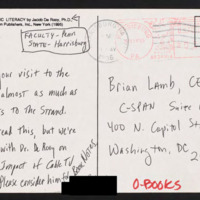 IC LITERACY by Jacob De Rooy, Ph.D.
n Publishers, Inc., New York (1995)
FACULTY - Penn
STATE - Harrisburg
our visit to the
almost as much as
s to The Strand.
ead this, but we're
with Dr. De Rooy on
Impact of Cable TV
Please consider him
BookNotes
Brian Lamb, CE
C-SPAN Suite
400 N. Capitol St
Washington, DC
2
O-BOOKS